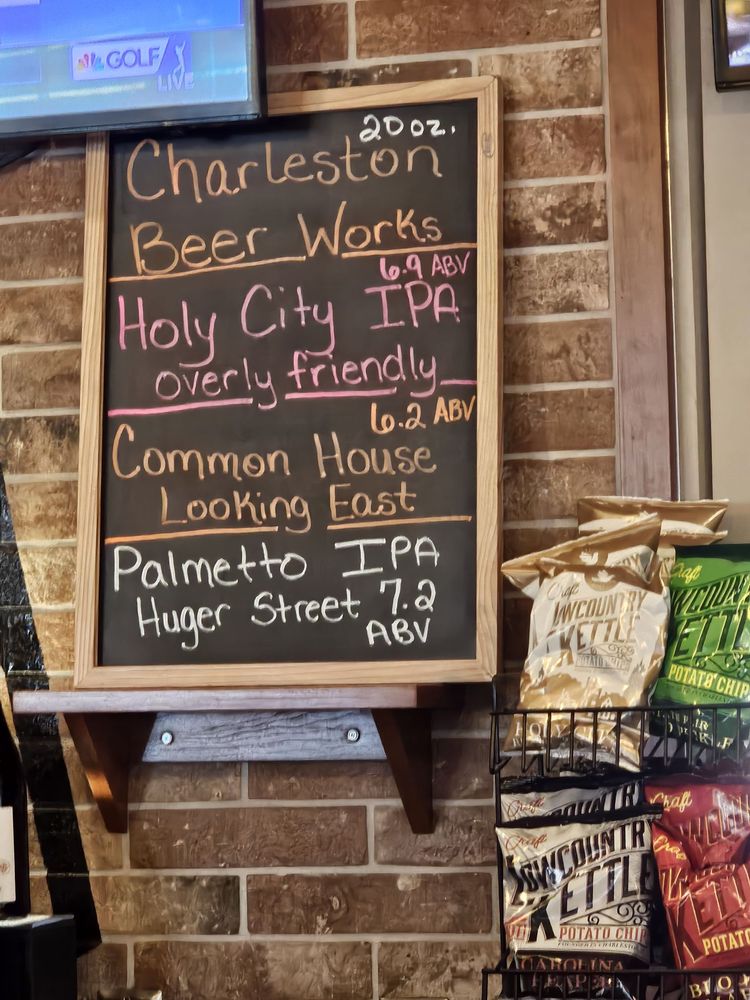 GOLF
LIVE
20 oz.
Charleston
Beer Works
6.9 ABV
Holy City IPA
overly friendly
6.2 ABV
Common House
Looking East
Palmetto IPA
Huger Street 7.2
ABV
Craft
LOWCOUNTRY
KETTLE
POTATO CHIPS
Craft
KETTLE
POTATO CHIP
Craft
COUNTRY
Craft
LOWCOUNTRY
KETTLE
POTATO CHIP
CAROLINA
REAPER
Craft
Craft
KET
POTATO